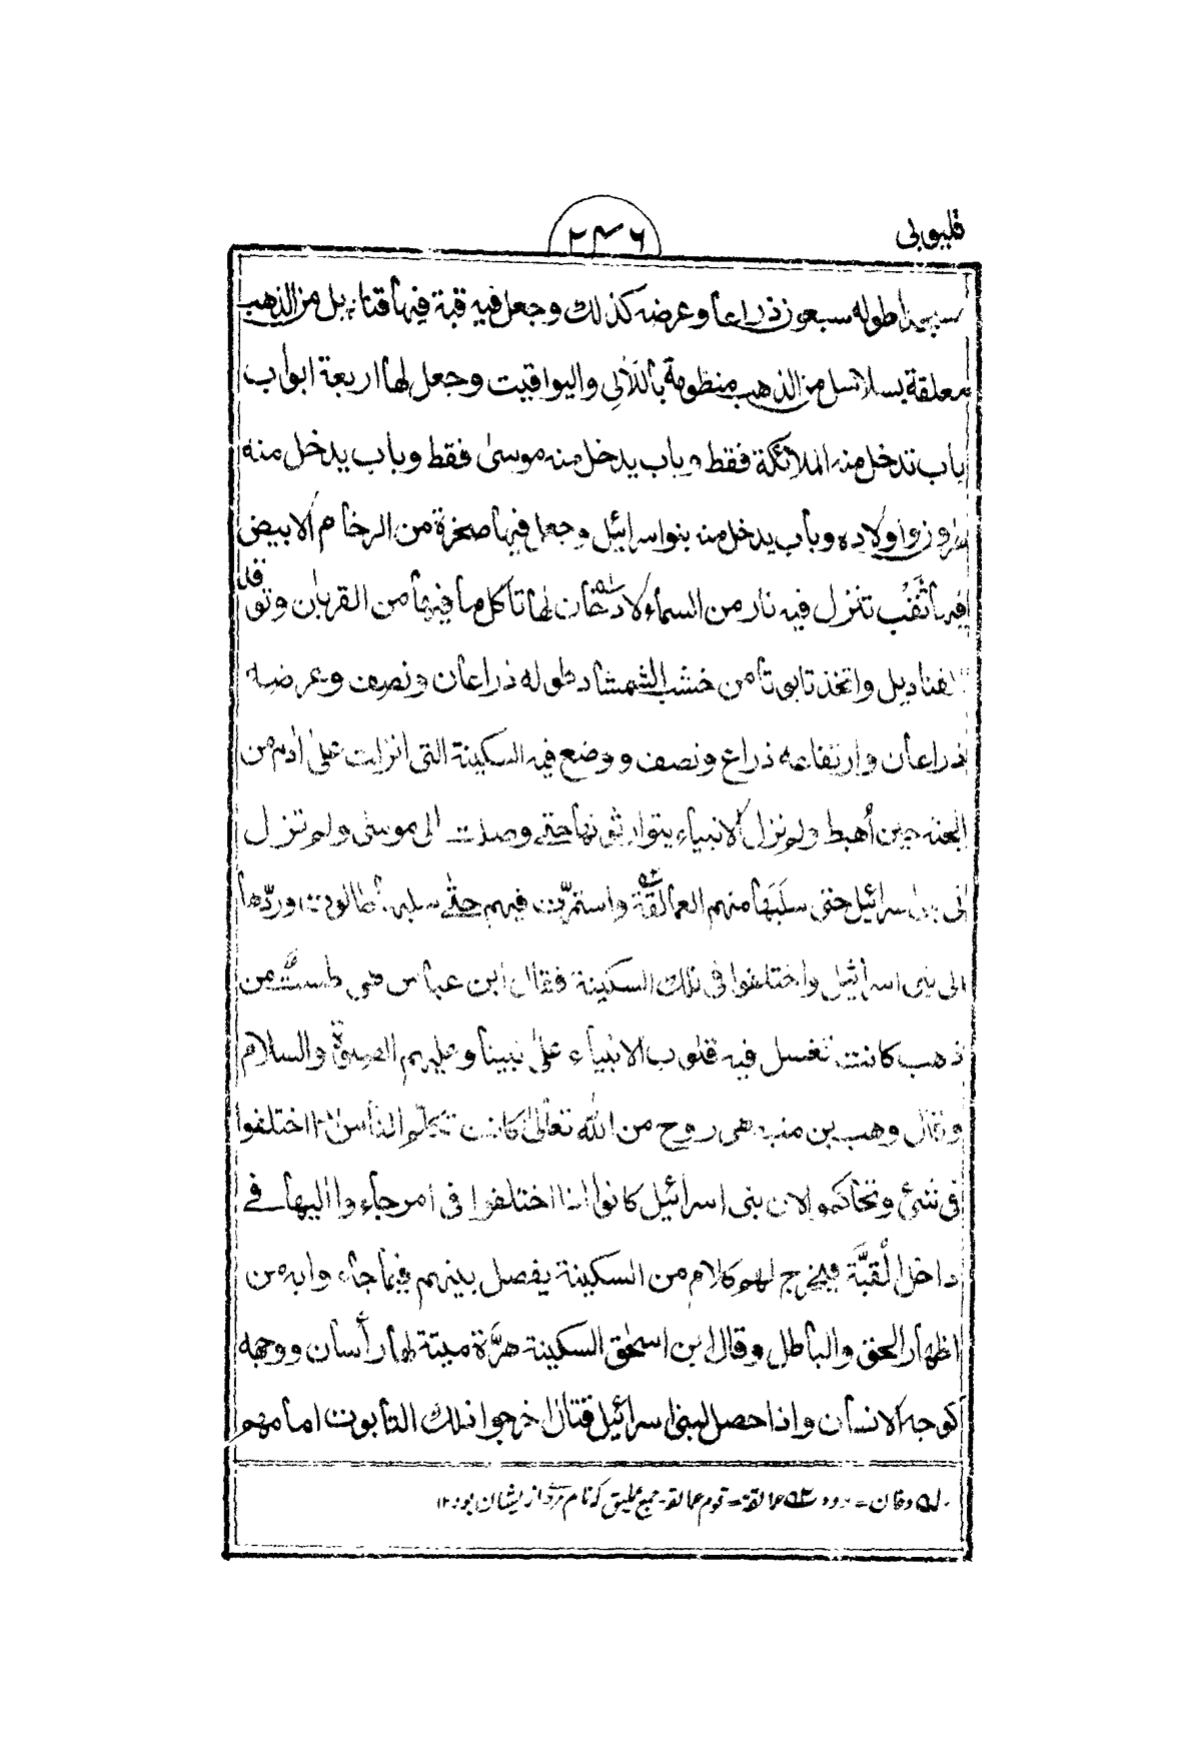 قليوبى
٢٤٦
مسجدا طوله سبعون ذراعا وعرضه كذلك وجعل فيه قبة فيها قناديل من الذهب
معلقة بسلاسل من الذهب منظومة باللآلي واليواقيت وجعل لها اربعة ابواب
باب تدخل منه الملائكة فقط وباب يدخل منه موسىٰ فقط وباب يدخل منه
هارون واولاده وباب يدخل منه بنواسرائيل وجعل فيها صخرة من الرخام الابيض
فيها ثُقُب تنزل فيه نار من السماء لا دخان لها تاكل ما فيها من القربان وتوقد
القناديل واتخذ تابوتا من خشب الشمشاد طوله ذراعان ونصف وعرضه
ذراعان وارتفاعه ذراع ونصف ووضع فيه السكينة التى انزلت علىٰ اٰدم من
الجنة حين أُهبط ولم تزل الانبياء يتوارثونها حتے وصلت الى موسىٰ ولم تزل
فى بنى اسرائيل حتى سلَبَها منهم العمالقة واستمرّت فيهم حتے سلبها طالوت وردّها
الى بنى اسرائيل واختلفوا فى تلك السكينة فقال ابن عباس هى طست من
ذهب كانت تغسل فيه قلوب الانبياء علىٰ نبينا وعليهم الصلوة والسلام
وقال وهب بن منبه هى روح من الله تعالىٰ كانت تكلّم الناس اذا اختلفوا
فى شئ وتحاكموا لان بنى اسرائيل كانوا اذا اختلفوا فى امر جاءوا اليها فے
داخل القبَّة فيخرج لهم كلام من السكينة يفصل بينهم فيما جاءوا به من
اظهار الحق والباطل وقال ابن اسحٰق السكينة هرَّة ميتة لها رأسان ووجهه
كوجه الانسان واذا حصل لبنى اسرائيل قتال اخرجوا ذلك التابوت امامهم
له دخان = دود ٥٢ عمالقة = قوم عمالقه جمع عمليق كه نام مردے از ايشان بود ١٢